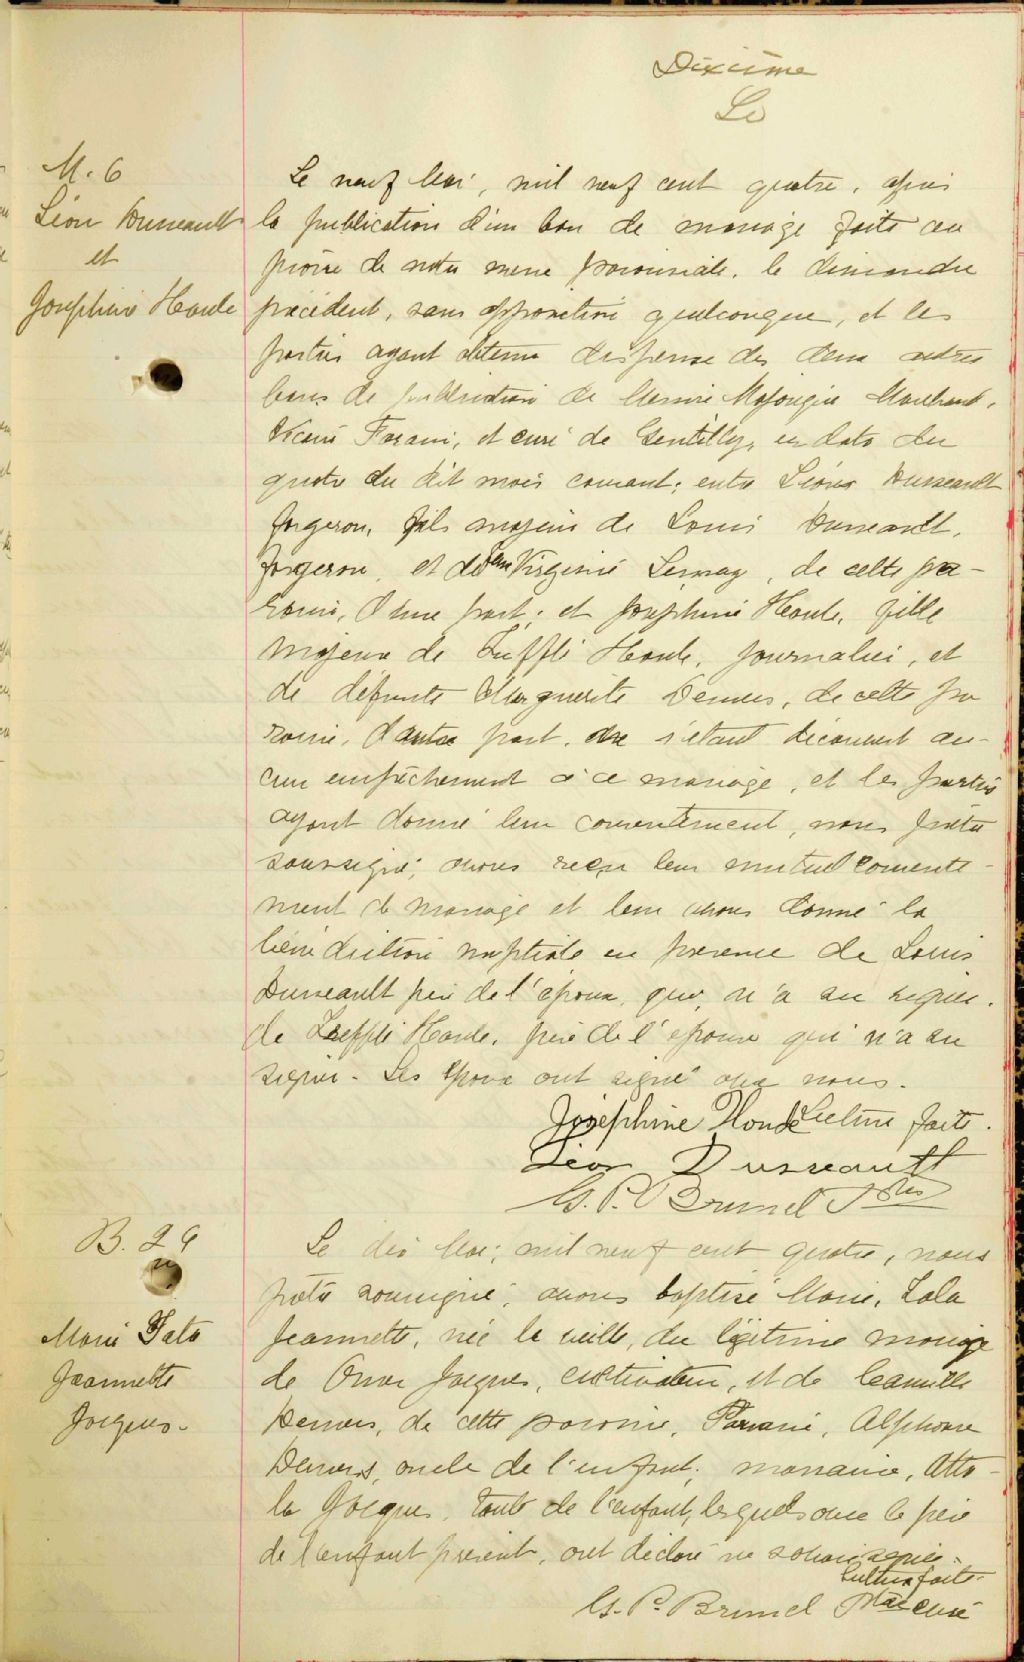 Dixième
Le
M. 6
Léon Dusseault
et
Joséphine Houle
Le neuf Mai, mil neuf cent quatre, après
la publication d'un ban de mariage faite au
prône de notre messe paroissiale, le dimanche
précédent, sans opposition quelconque, et les
parties ayant obtenu dispense des deux autres
bans de publication de Messire Marchand,
Vicaire Forain, et curé de Gentilly, en date du
quatre du dit mois courant; entre Léon Dusseault
forgeron, fils majeur de Louis Dusseault,
forgeron, et de feu Virginie Lemay, de cette pa-
roisse, d'une part; et Joséphine Houle, fille
majeure de Treffle Houle, journalier, et
de défunte Marguerite Demers, de cette pa
roisse, d'autre part, ne s'étant découvert au-
cun empêchement à ce mariage, et les parties
ayant donné leur consentement, nous prêtre
soussigné, avons reçu leur mutuel consente-
ment de mariage et leur avons donné la
bénédiction nuptiale en présence de Louis
Dusseault père de l'époux, qui n'a su signer,
de Treffle Houle, père de l'épouse qui n'a su
signer. Les époux ont signé avec nous.
Lecture faite.
Joséphine Houle
Léon Dusseault
G. P. Brunel Ptre
B. 29
Marie Lala
Jeannette
Jacques.
Le dix Mai, mil neuf cent quatre, nous
prêtre soussigné, avons baptisé Marie, Lala
Jeannette, née la veille, du légitime mariage
de Omer Jacques, cultivateur, et de Camille
Demers, de cette paroisse, Parrain, Alphonse
Demers, oncle de l'enfant; marraine, Atta-
la Jacques, tante de l'enfant, lesquels avec le père
de l'enfant présent, ont déclaré ne savoir signer.
Lecture faite.
G. P. Brunel Ptre curé